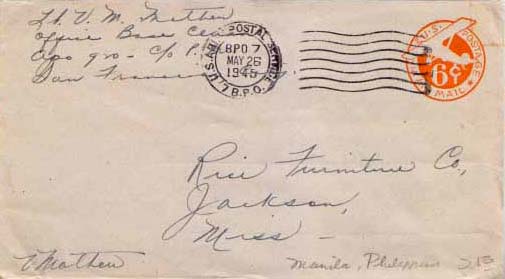 Lt. V. M. Mather
Office Base
apo 920 - c/o P.
San Francisco
U.S. ARMY POSTAL SERVICE
BPO 7
MAY 26
1945
7 B.P.O.
U.S. POSTAGE
6¢
AIR MAIL
Rice Furniture Co.,
Jackson,
Miss -
V Mather
Manila, Philippines